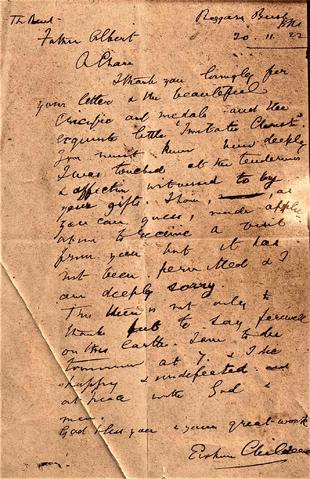 The Revd.
Father Albert
Beggars Bush Bks
20. 11. 22
A Chara
I thank you lovingly for
your letter & the beautiful
Crucifix and medals and the
exquisite little "Imitatio Christi"
You must know how deeply
I was touched at the tenderness
& affection witnessed to by
your gifts. I have, as
you can guess, made appli-
cation to receive a visit
from you but it has
not been permitted & I
am deeply sorry.
This then is not only to
thank but to say farewell
on this earth. I am to die
tomorrow at 7. & I die
happy & undefeated and
at peace with God &
men.
God bless you & your great work
Erskine Childers